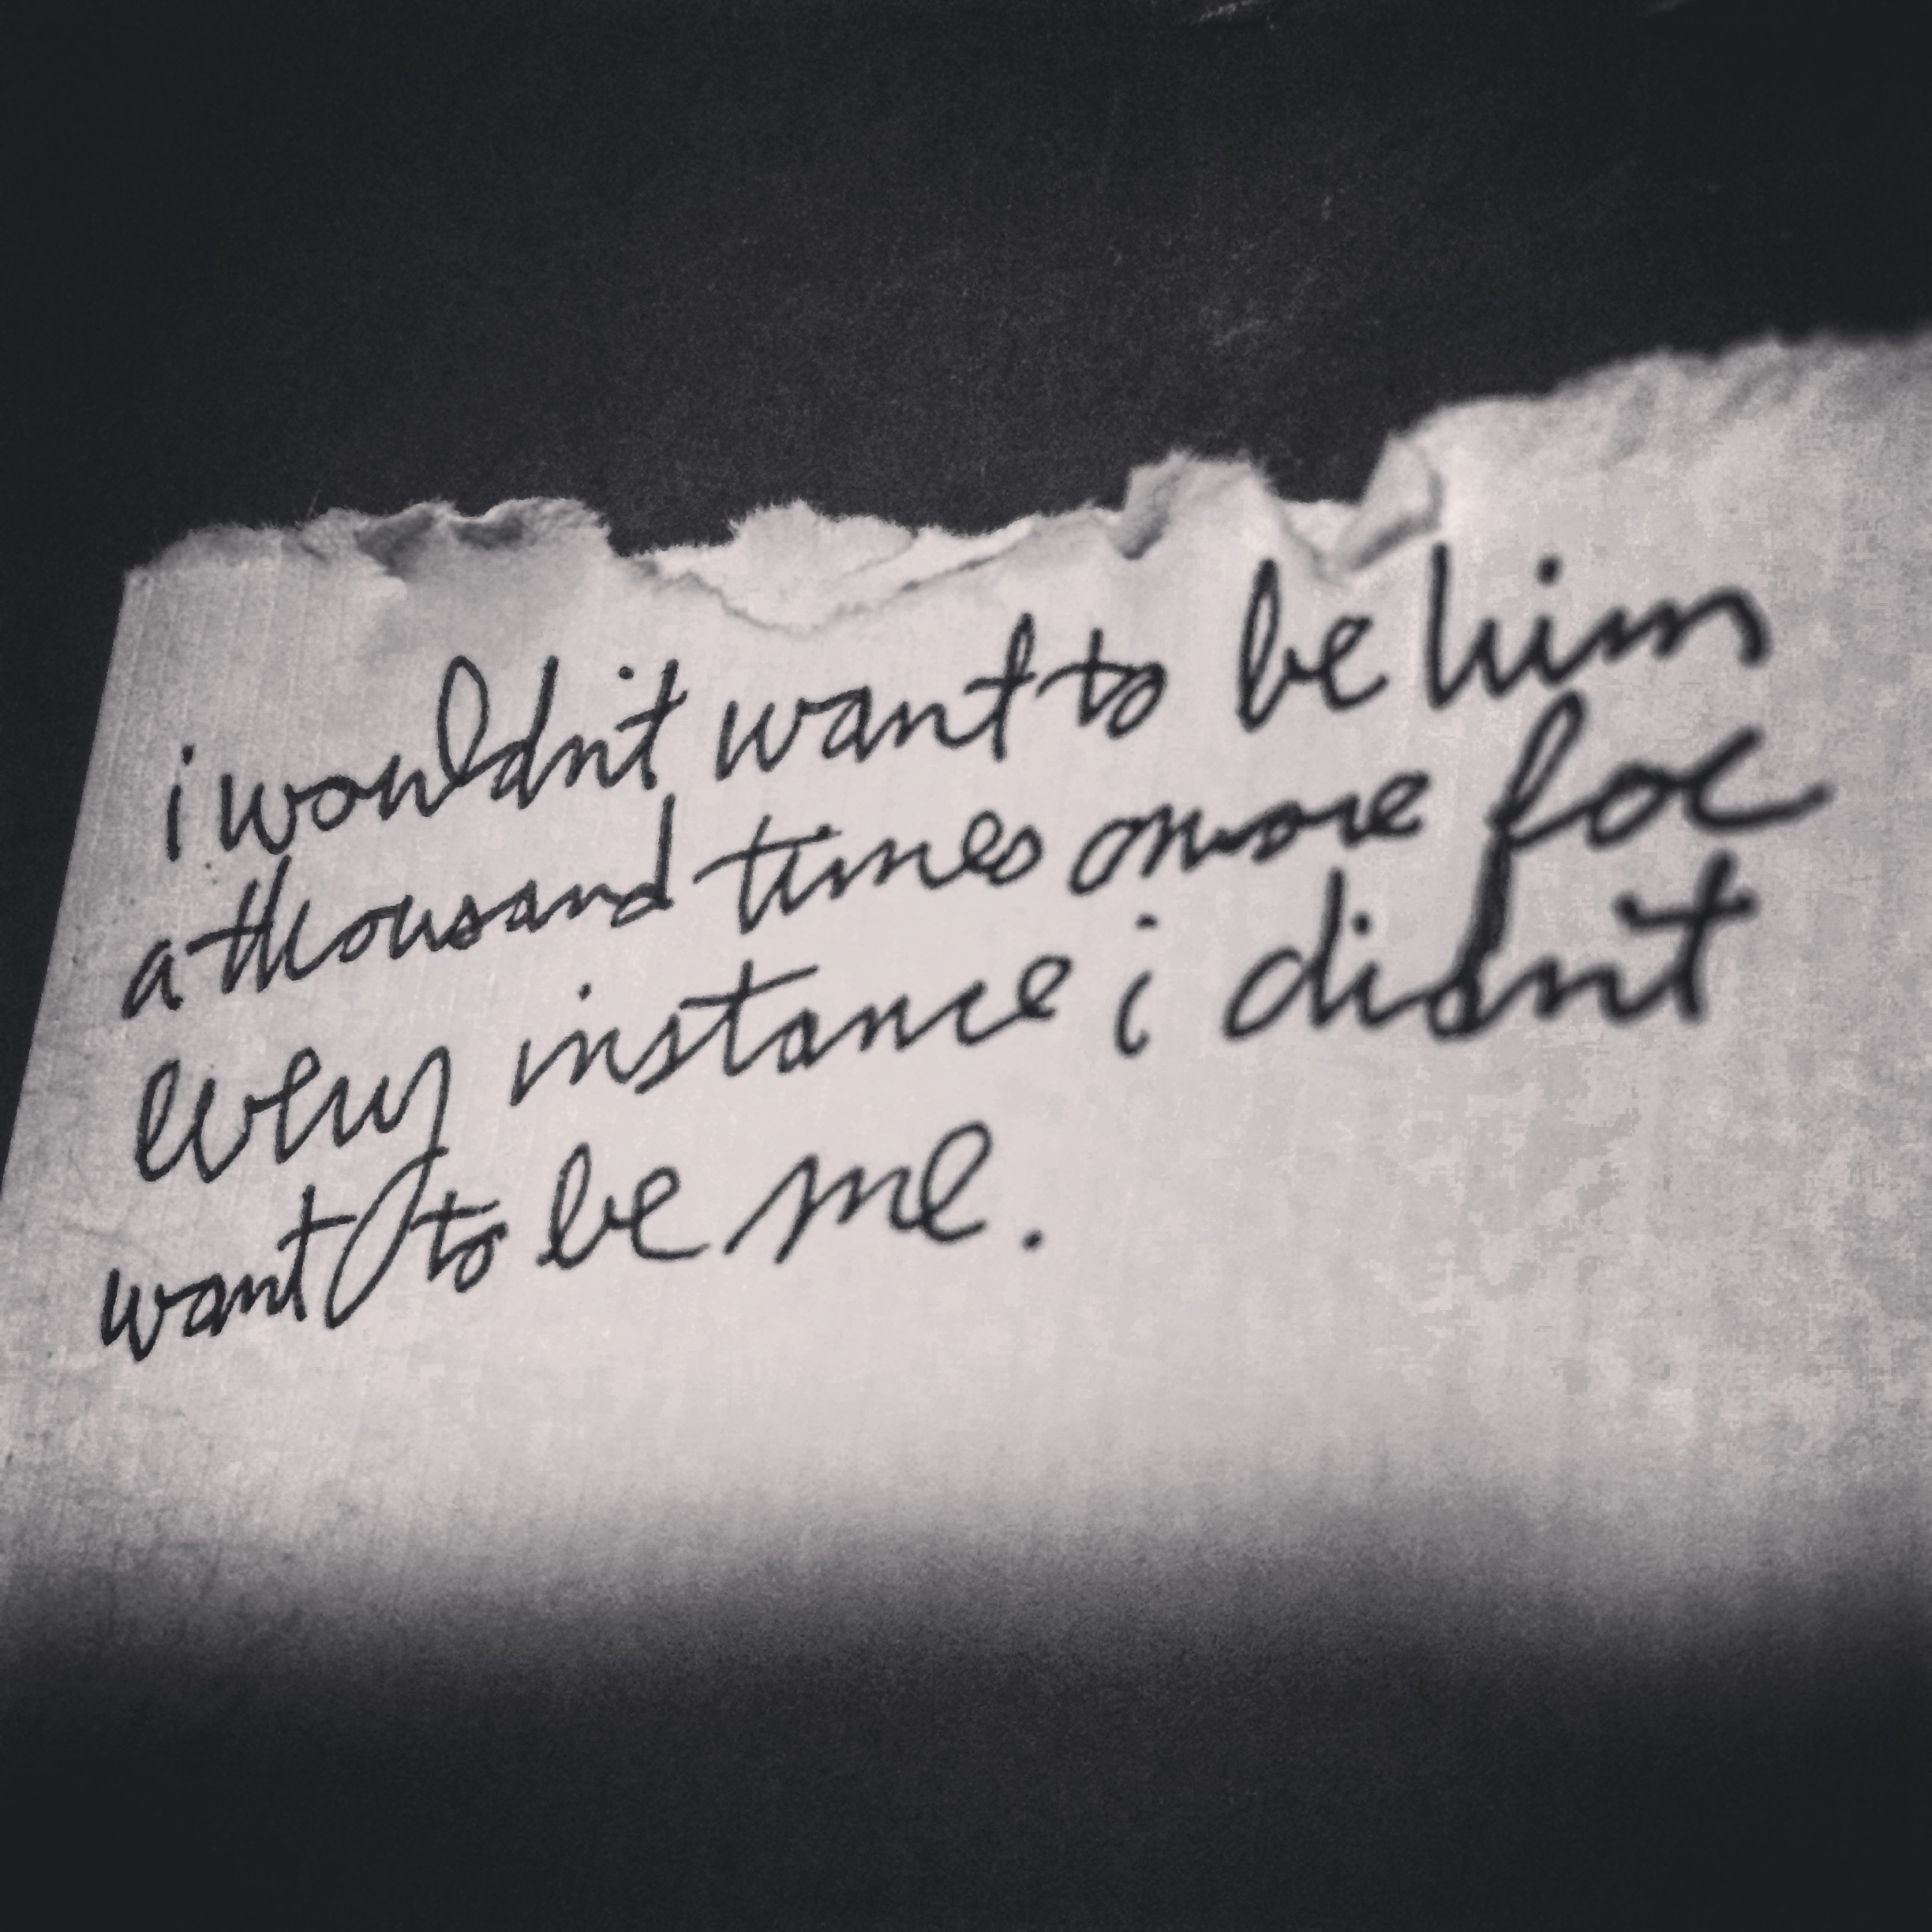 i wouldn't want to be him
a thousand times more for
every instance i didn't
want to be me.